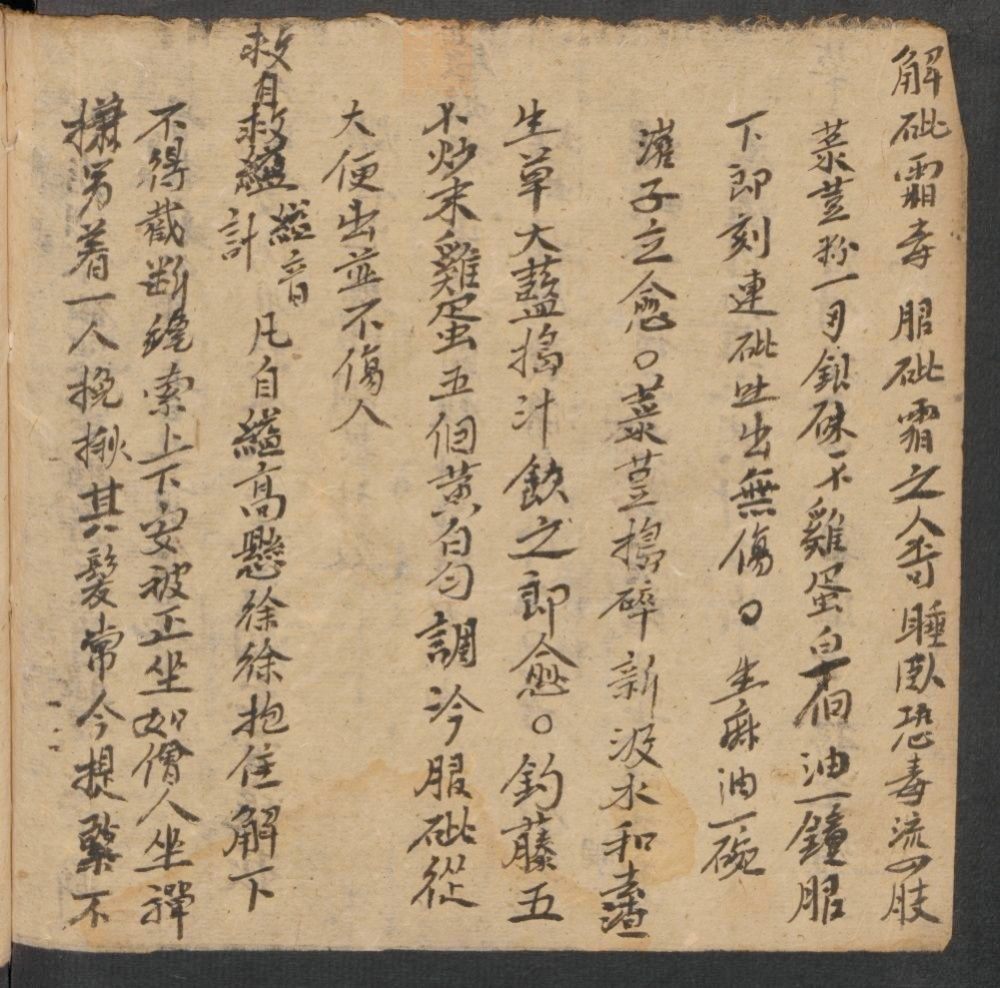 解砒霜毒 服砒霜之人寺睡臥恐毒流四肢
菉荳粉一 銀硃一不雞蛋白 個油一鐘服
下即刻連砒吐出無傷〇生麻油一碗
灌子立愈〇菉荳搗碎新汲水和
生草大藍搗汁飲之即愈〇釣藤五
不炒末雞蛋五個黃白勻調冷服砒從
大便出並不傷人
救自救縊縊音計 凡自縊高懸徐徐抱住解下
不得截斷繩索上下安被正坐如僧人坐禪
攗另着一人挽揪其髮常令提緊不